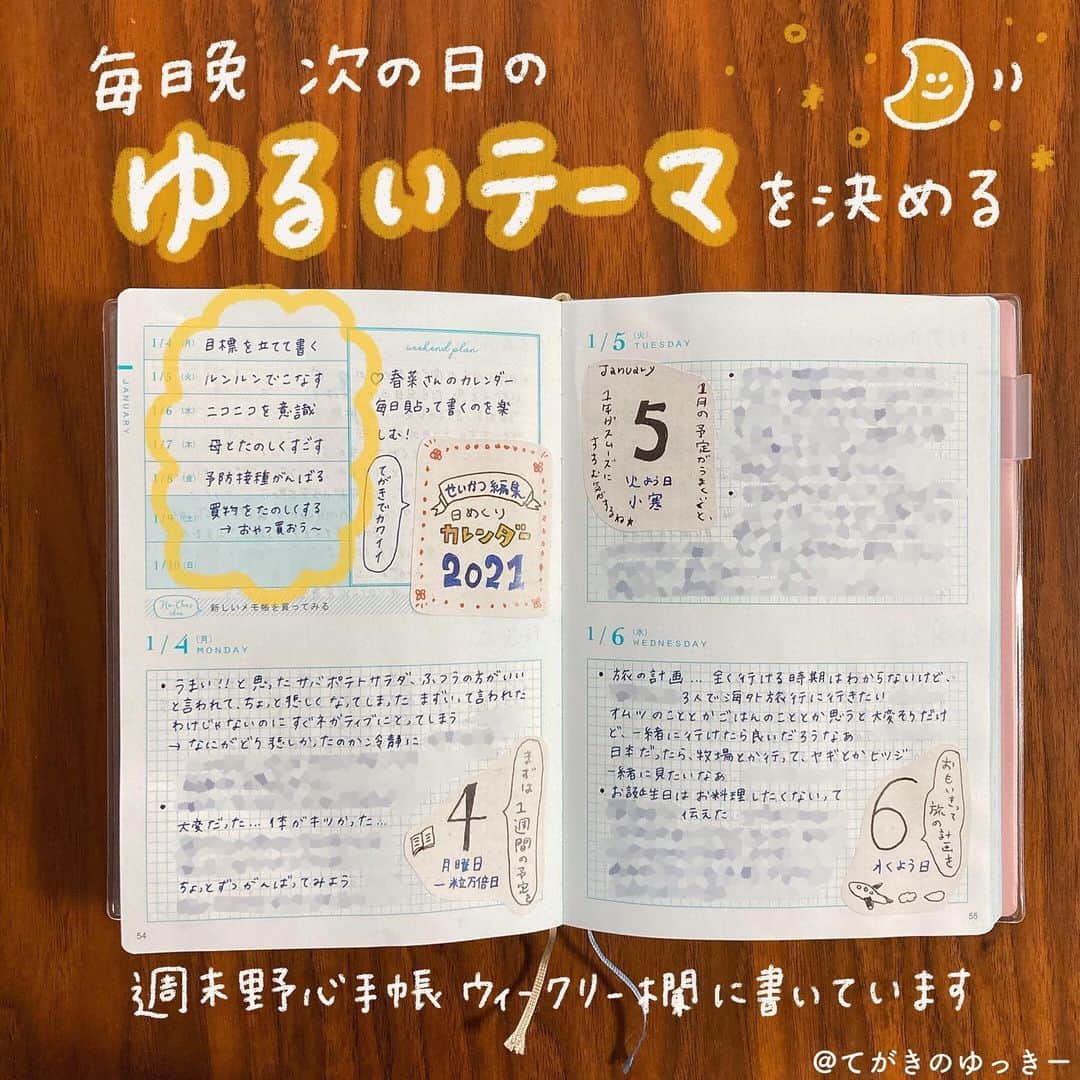 毎日晩 次の日の
ゆるいテーマを決める
JANUARY
1/4 (月) 目標を立てて書く
1/5 (火) ルンルンでこなす
1/6 (水) ニコニコを意識
1/7 (木) 母とたのしくすごす
1/8 (金) 予防接種がんばる
1/9 (土) 買物をたのしくする
→おやつ買おう〜
1/10 (日)
weekend plan
♡春菜さんのカレンダー
毎日貼って書くのを楽
しむ!
てがきでカワイイ
せいかつ編集
日めくり
カレンダー
2021
新しいメモ帳を買ってみる
1/4 (月)
MONDAY
・うまい!!と思ったサバポテトサラダ、ふつうの方がいい
と言われて、ちょっと悲しくなってしまった まずいって言われた
わけじゃないのにすぐネガティブにとってしまう
→なにがどう悲しかったのか冷静に
大変だった…体がキツかった…
ちょっとずつがんばってみよう
4
月曜日
一粒万倍日
まずは1週間の予定を
54
1/5 (火)
TUESDAY
January
5
火よう日
小寒
1月の予定がうまくいくと、
1年がスムーズに
すすむ気がするね★
1/6 (水)
WEDNESDAY
・旅の計画…全く行ける時期はわからないけど、
3人で海外旅行に行きたい
オムツのこととかごはんのこととか思うと大変そうだけ
ど、一緒に行けたら良いだろうなあ
日本だったら、牧場とか行って、ヤギとかヒツジ
一緒に見たいなあ
・お誕生日はお料理したくないって
伝えた
6
水よう日
おもいきって
旅の計画を
55
週末野心手帳 ウィークリー欄に書いています
@てがきのゆっきー